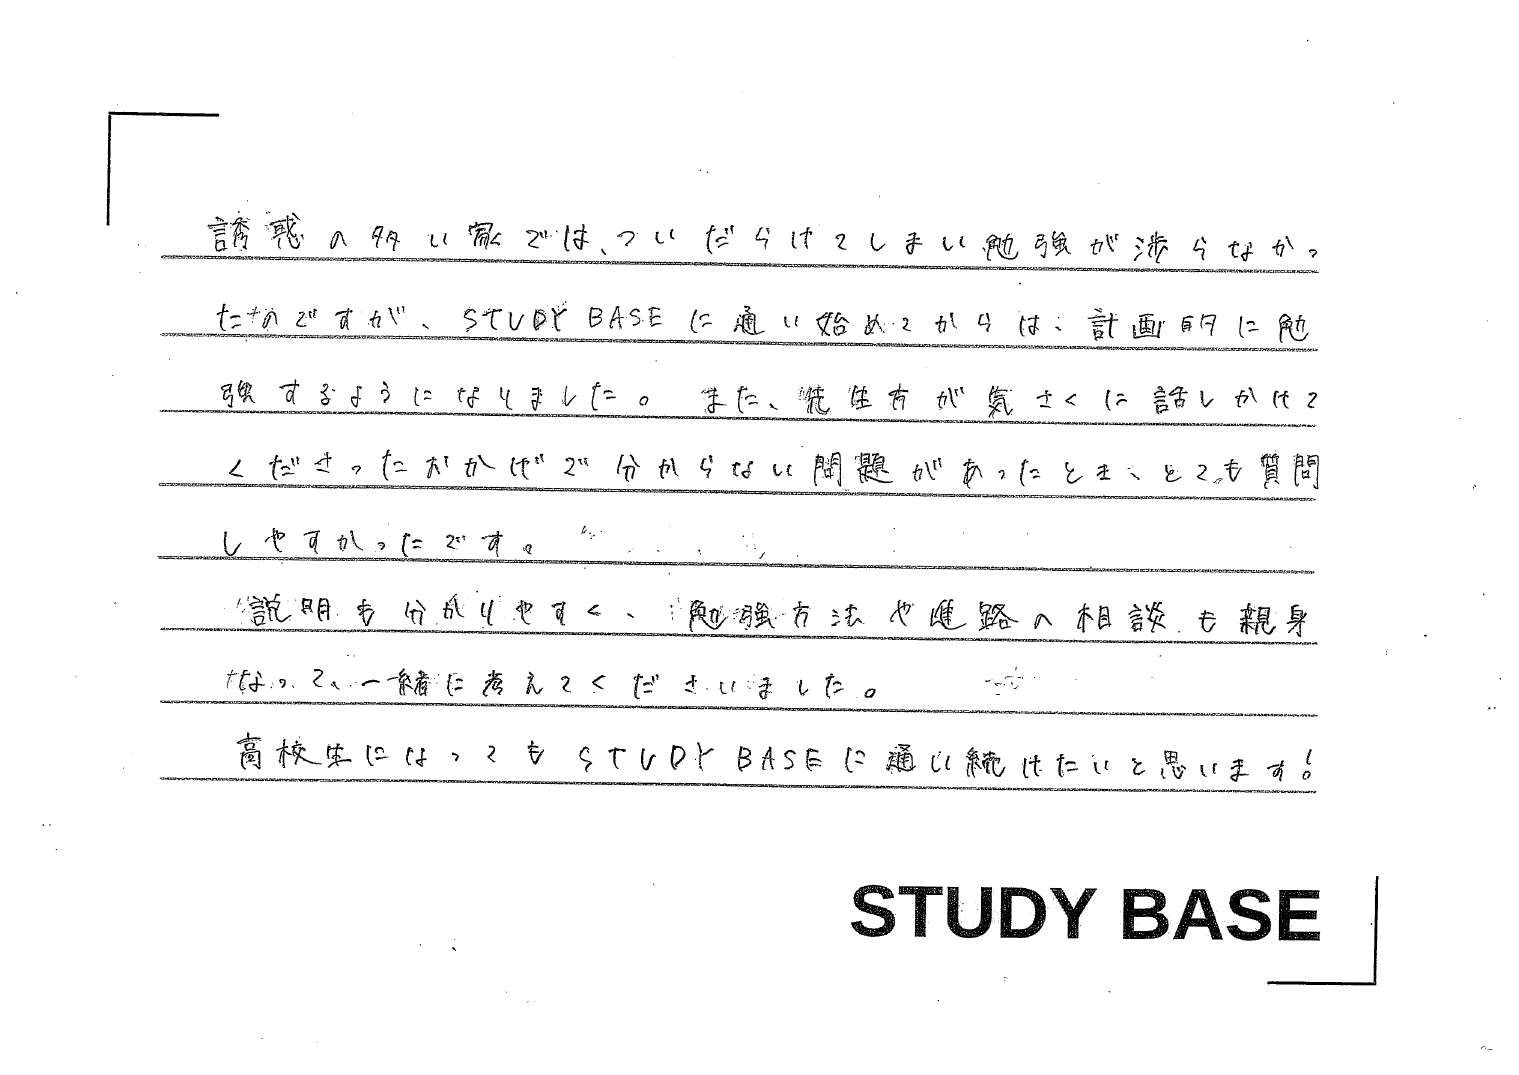 誘惑の多い家では、ついだらけてしまい勉強が渉らなかっ
たのですが、STUDY BASEに通い始めてからは、計画的に勉
強するようになりました。また、先生方が気さくに話しかけて
くださったおかげで分からない問題があったとき、とても質問
しやすかったです。
説明も分かりやすく、勉強方法や進路の相談も親身
なって、一緒に考えてくださいました。
高校生になってもSTUDY BASEに通い続けたいと思います!
STUDY BASE